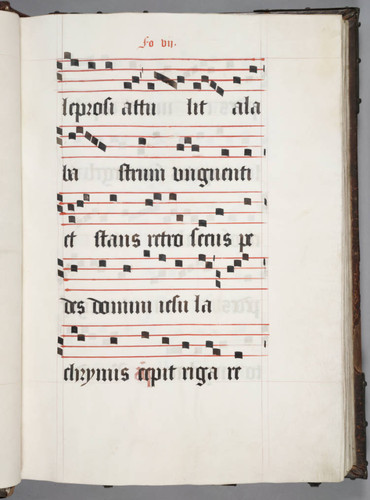 Fo vij.
leprosi attu lit ala
ba strum unguenti
et stans retro secus pe
des domini iesu la
chrymis cepit riga re